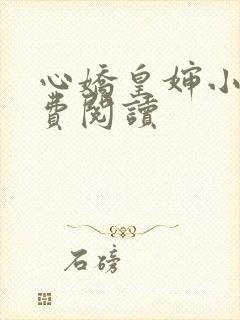 心嬌皇婶小
費閱讀
石磅